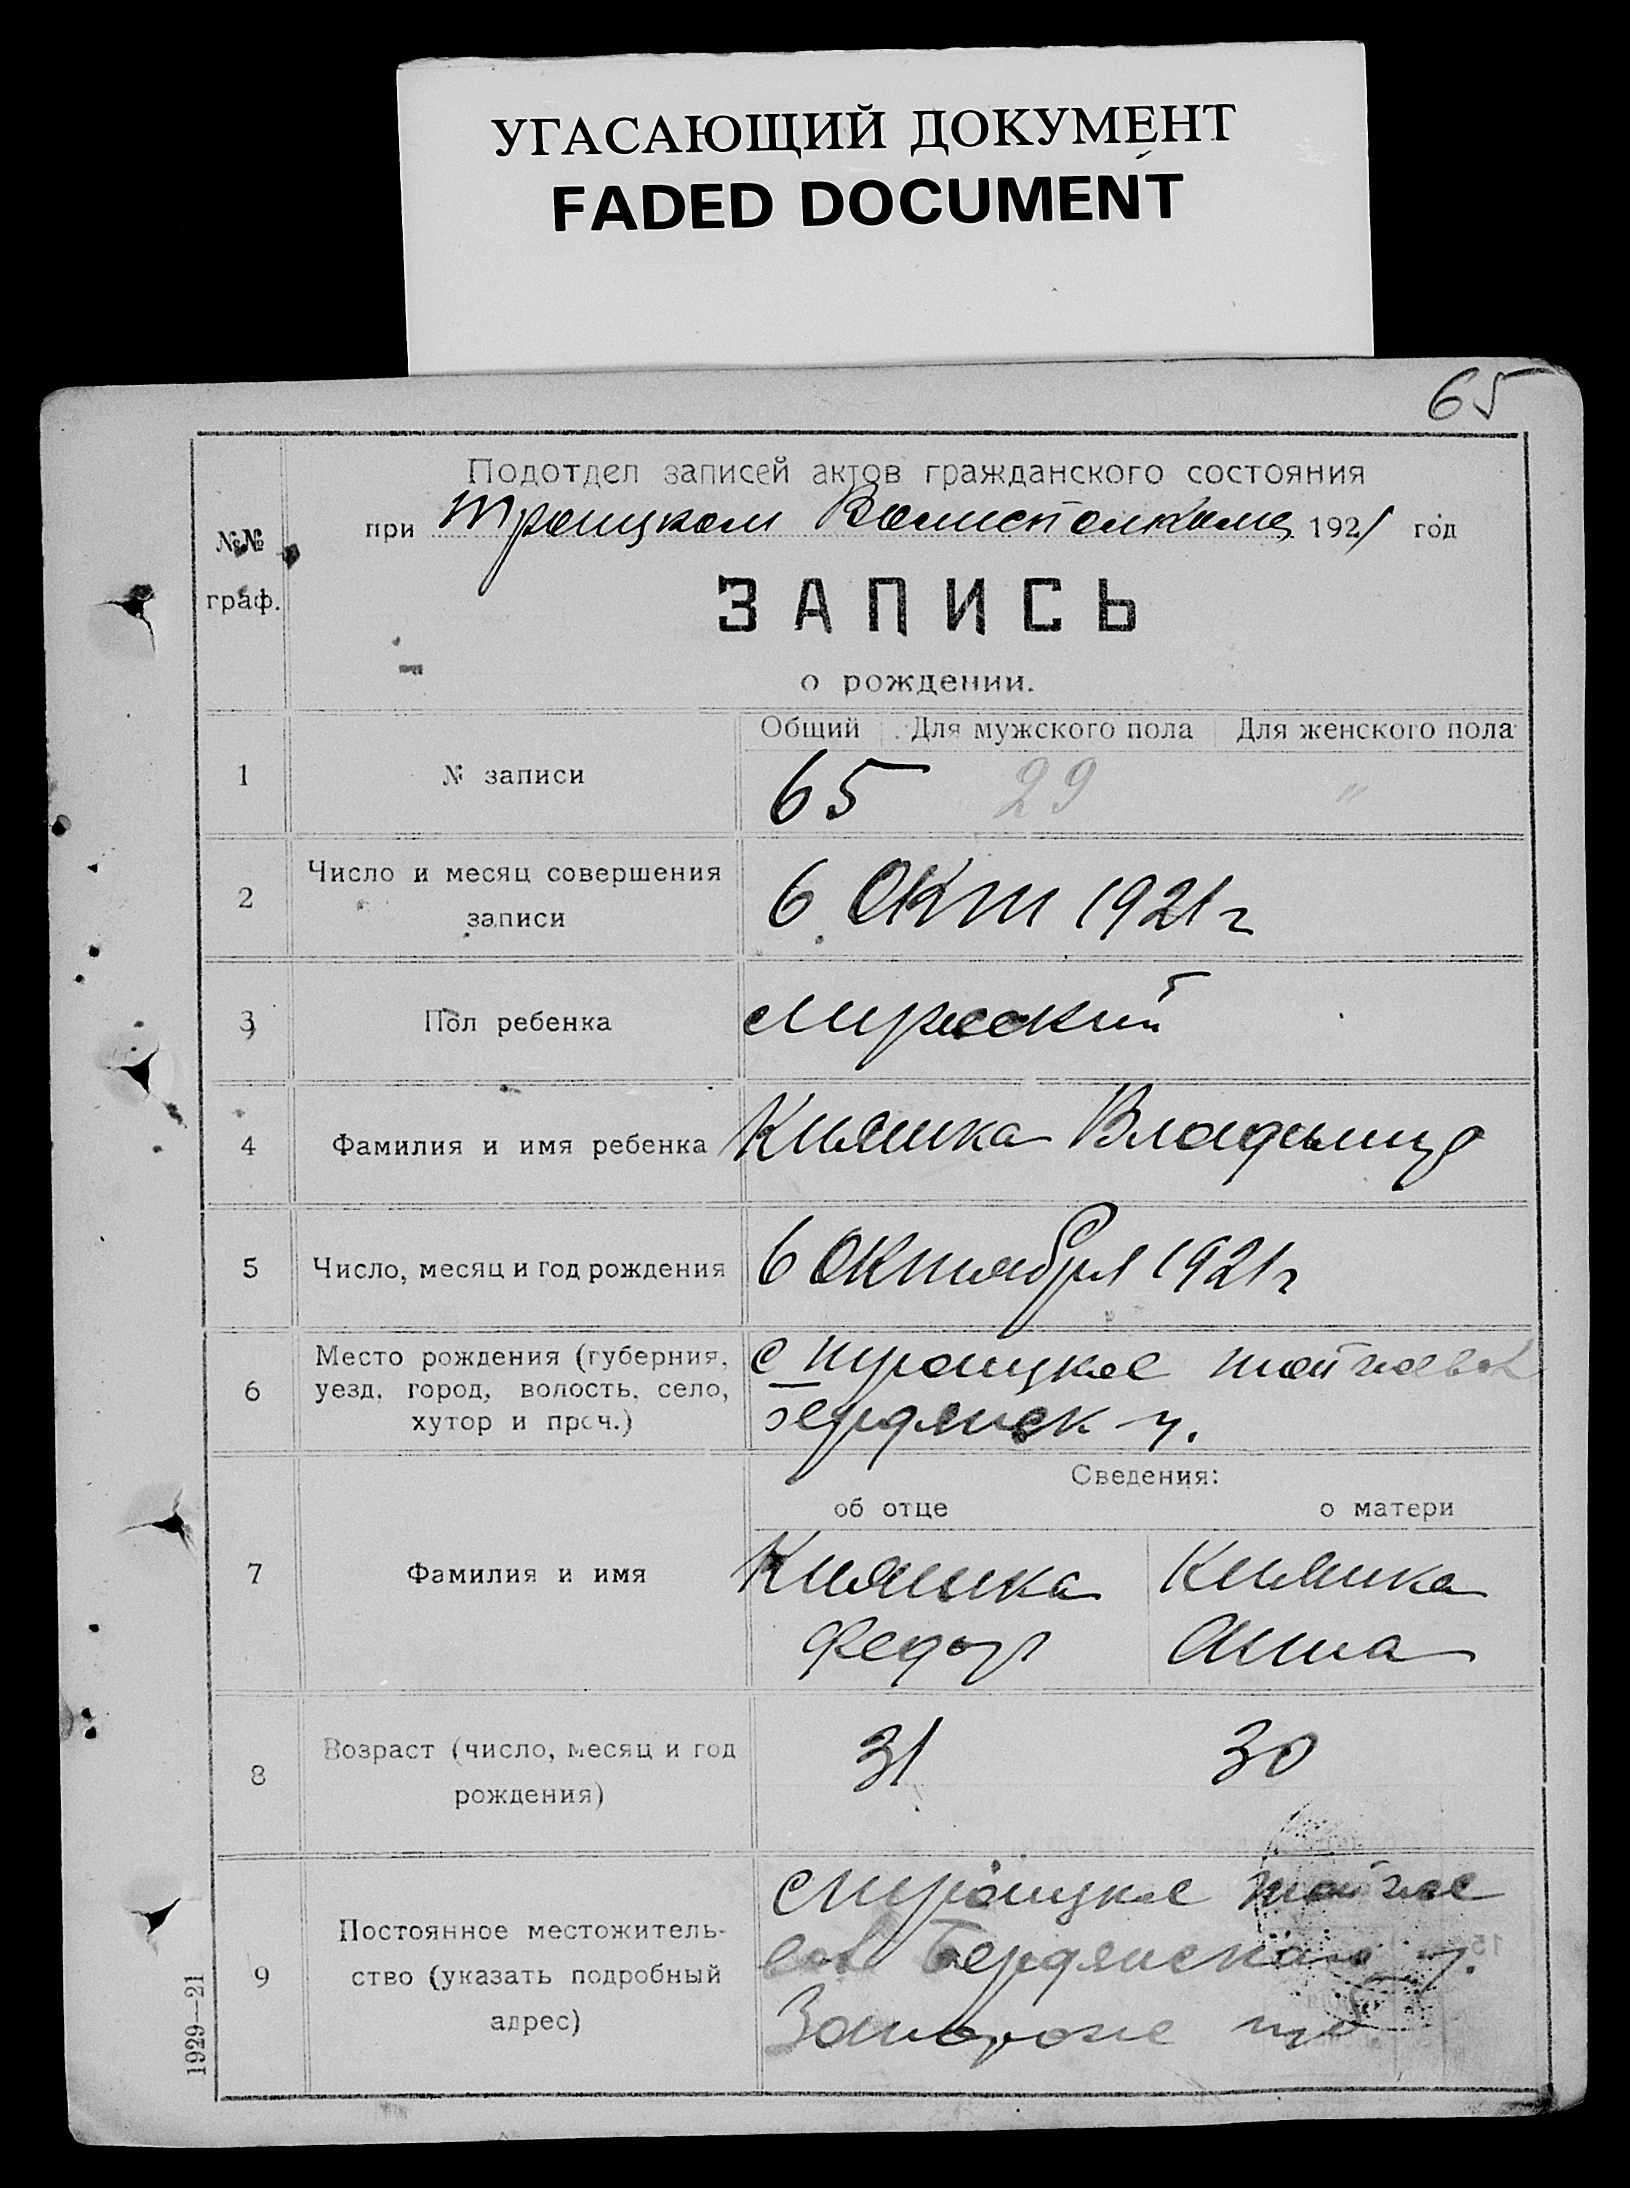 УГАСАЮЩИЙ ДОКУМЕНТ
FADED DOCUMENT
65
Подотдел записей актов гражданского состояния
№№ граф.
при Троицком Волисполкоме 1921 год
ЗАПИСЬ
о рождении.
Общий Для мужского пола Для женского пола
1 № записи 65 29 "
2 Число и месяц совершения
записи 6 Окт 1921 г
3 Пол ребенка мужеский
4 Фамилия и имя ребенка Кияшка Владымир
5 Число, месяц и год рождения 6 Октября 1921 г
6 Место рождения (губерния,
уезд, город, волость, село,
хутор и проч.)
с Троицкое
бердянск у.
Сведения:
об отце о матери
7 Фамилия и имя Кияшка Кияшка
Федор Анна
8 Возраст (число, месяц и год
рождения) 31 30
9 Постоянное местожитель-
ство (указать подробный
адрес)
с Троицкое
Бердянского у.
Запорож губ
1929—21